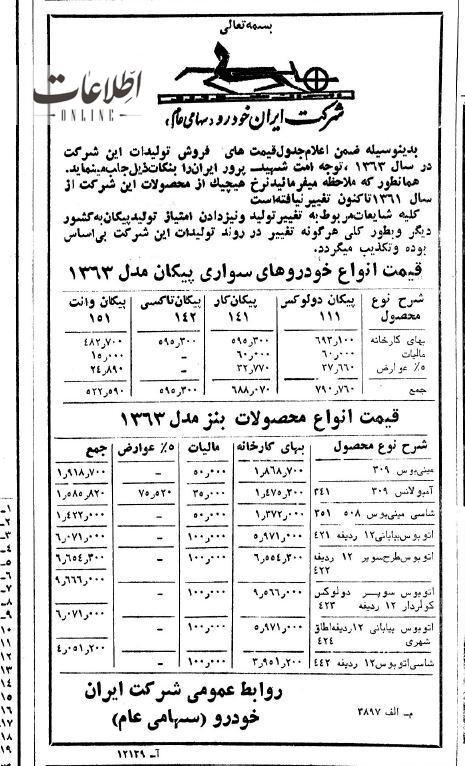 بسمه تعالی
اطلاعات
ONLINE
شرکت ایران خودرو (سهامی عام)
بدینوسیله ضمن اعلام جدول قیمت های فروش تولیدات این شرکت
در سال ۱۳۶۳، توجه امت شهید پرور ایران را بنکات ذیل جلب مینماید.
همانطور که ملاحظه میفرمائید نرخ هیچیک از محصولات این شرکت از
سال ۱۳۶۱ تاکنون تغییر نیافته است
کلیه شایعات مربوط به تغییر تولید و نیز دادن امتیاز تولید پیکان به کشور
دیگر و بطور کلی هرگونه تغییر در روند تولیدات این شرکت بی اساس
بوده و تکذیب میگردد.
قیمت انواع خودروهای سواری پیکان مدل ۱۳۶۳
شرح نوع محصول پیکان دولوکس ۱۱۱ پیکان کار ۱۴۱ پیکان تاکسی ۱۴۲ پیکان وانت ۱۵۱
بهای کارخانه ۶۹۳٫۱۰۰ ۵۹۵٫۳۰۰ ۵۹۵٫۳۰۰ ۴۸۲٫۷۰۰
مالیات ۶۰٫۰۰۰ ۶۰٫۰۰۰ – ۱۵٫۰۰۰
۵٪ عوارض ۳۷٫۶۶۰ ۳۲٫۷۷۰ – ۲۴٫۸۹۰
جمع ۷۹۰٫۷۶۰ ۶۸۸٫۰۷۰ ۵۹۵٫۳۰۰ ۵۲۲٫۵۹۰
قیمت انواع محصولات بنز مدل ۱۳۶۳
شرح نوع محصول بهای کارخانه مالیات ۵٪ عوارض جمع
مینی بوس ۳۰۹ ۱٫۸۶۸٫۷۰۰ ۵۰٫۰۰۰ – ۱٫۹۱۸٫۷۰۰
آمبولانس ۳۰۹ ۳۴۱ ۱٫۴۷۵٫۳۰۰ ۳۵٫۰۰۰ ۷۵٫۵۲۰ ۱٫۵۸۵٫۸۲۰
شاسی مینی بوس ۵۰۸ ۳۵۱ ۱٫۳۷۲٫۰۰۰ ۵۰٫۰۰۰ – ۱٫۴۲۲٫۰۰۰
اتوبوس بیابانی ۱۲ ردیفه ۴۲۱ ۵٫۹۷۱٫۰۰۰ ۱۰۰٫۰۰۰ – ۶٫۰۷۱٫۰۰۰
اتوبوس طرح سوپر ۱۲ ردیفه ۴۲۲ ۶٫۵۵۴٫۳۰۰ ۱۰۰٫۰۰۰ – ۶٫۶۵۴٫۳۰۰
اتوبوس سوپر دولوکس کولردار ۱۲ ردیفه ۴۲۳ ۹٫۵۶۶٫۰۰۰ ۱۰۰٫۰۰۰ – ۹٫۶۶۶٫۰۰۰
اتوبوس بیابانی ۱۲ ردیفه اطاق شهری ۴۲۴ ۵٫۹۷۱٫۰۰۰ ۱۰۰٫۰۰۰ – ۶٫۰۷۱٫۰۰۰
شاسی اتوبوس ۱۲ ردیفه ۴۴۲ ۳٫۹۵۱٫۲۰۰ ۱۰۰٫۰۰۰ – ۴٫۰۵۱٫۲۰۰
روابط عمومی شرکت ایران
خودرو (سهامی عام)
م- الف ۳۸۹۷
آ- ۱۲۱۲۹